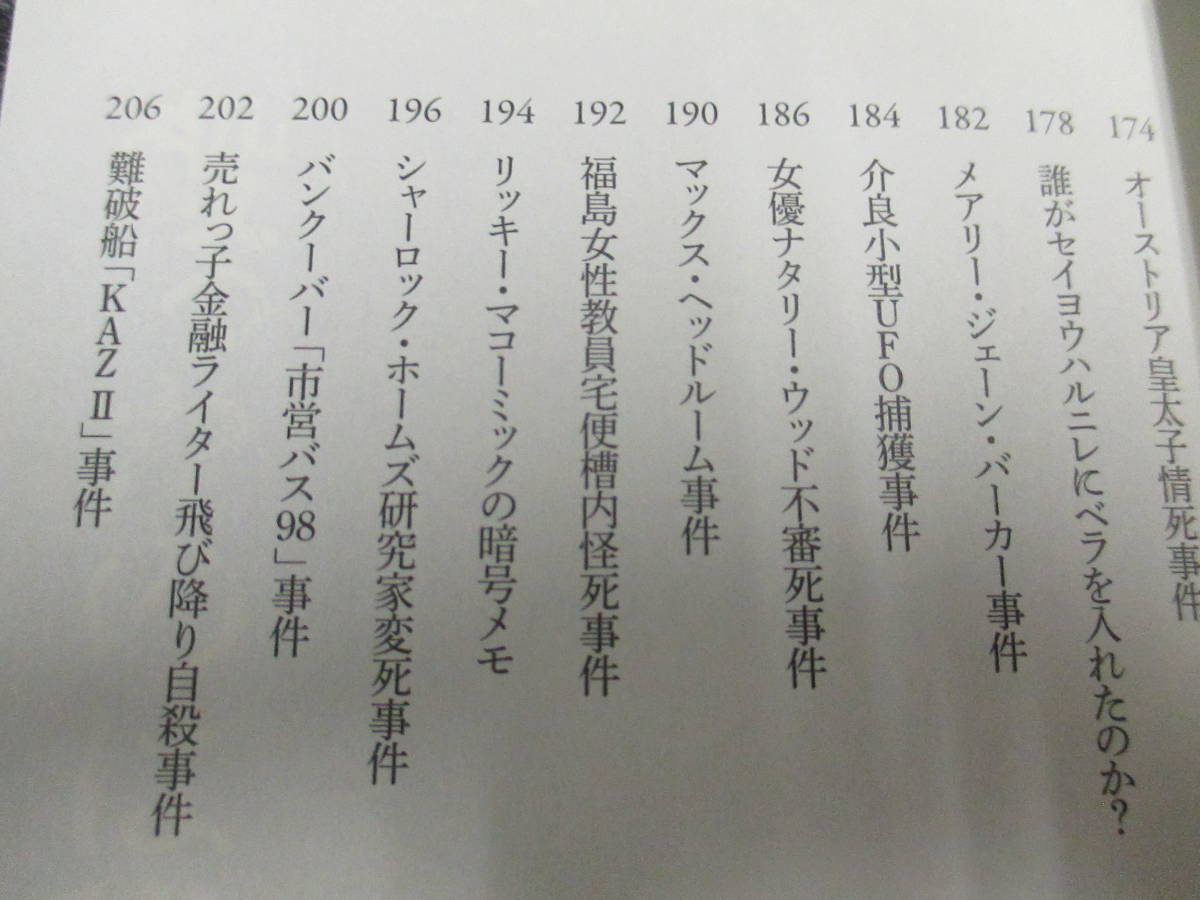 174 オーストリア皇太子情死事件
178 誰がセイヨウハルニレにベラを入れたのか?
182 メアリー・ジェーン・バーカー事件
184 介良小型UFO捕獲事件
186 女優ナタリー・ウッド不審死事件
190 マックス・ヘッドルーム事件
192 福島女性教員宅便槽内怪死事件
194 リッキー・マコーミックの暗号メモ
196 シャーロック・ホームズ研究家変死事件
200 バンクーバー「市営バス98」事件
202 売れっ子金融ライター飛び降り自殺事件
206 難破船「KAZ II」事件